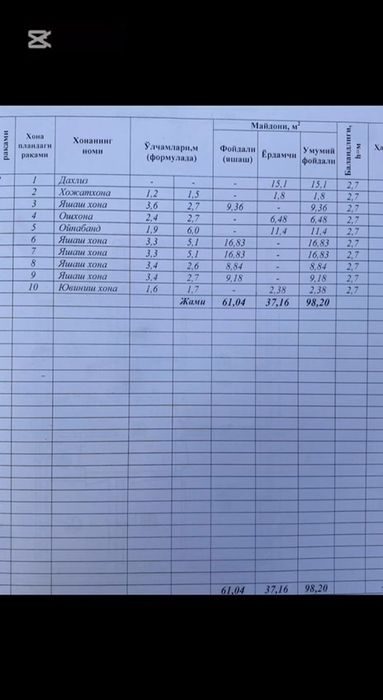 раками
Хона пландаги раками
Хонанинг номи
Ўлчамлари,м (формулада)
Майдони, м²
Фойдали (яшаш)
Ёрдамчи
Умумий фойдали
Баландлиги, h=м
1 Дахлиз - - - 15,1 15,1 2,7
2 Хожатхона 1,2 1,5 - 1,8 1,8 2,7
3 Яшаш хона 3,6 2,7 9,36 - 9,36 2,7
4 Ошхона 2,4 2,7 - 6,48 6,48 2,7
5 Ойнабанд 1,9 6,0 - 11,4 11,4 2,7
6 Яшаш хона 3,3 5,1 16,83 - 16,83 2,7
7 Яшаш хона 3,3 5,1 16,83 - 16,83 2,7
8 Яшаш хона 3,4 2,6 8,84 - 8,84 2,7
9 Яшаш хона 3,4 2,7 9,18 - 9,18 2,7
10 Ювиниш хона 1,6 1,7 - 2,38 2,38 2,7
Жами 61,04 37,16 98,20
61,04 37,16 98,20